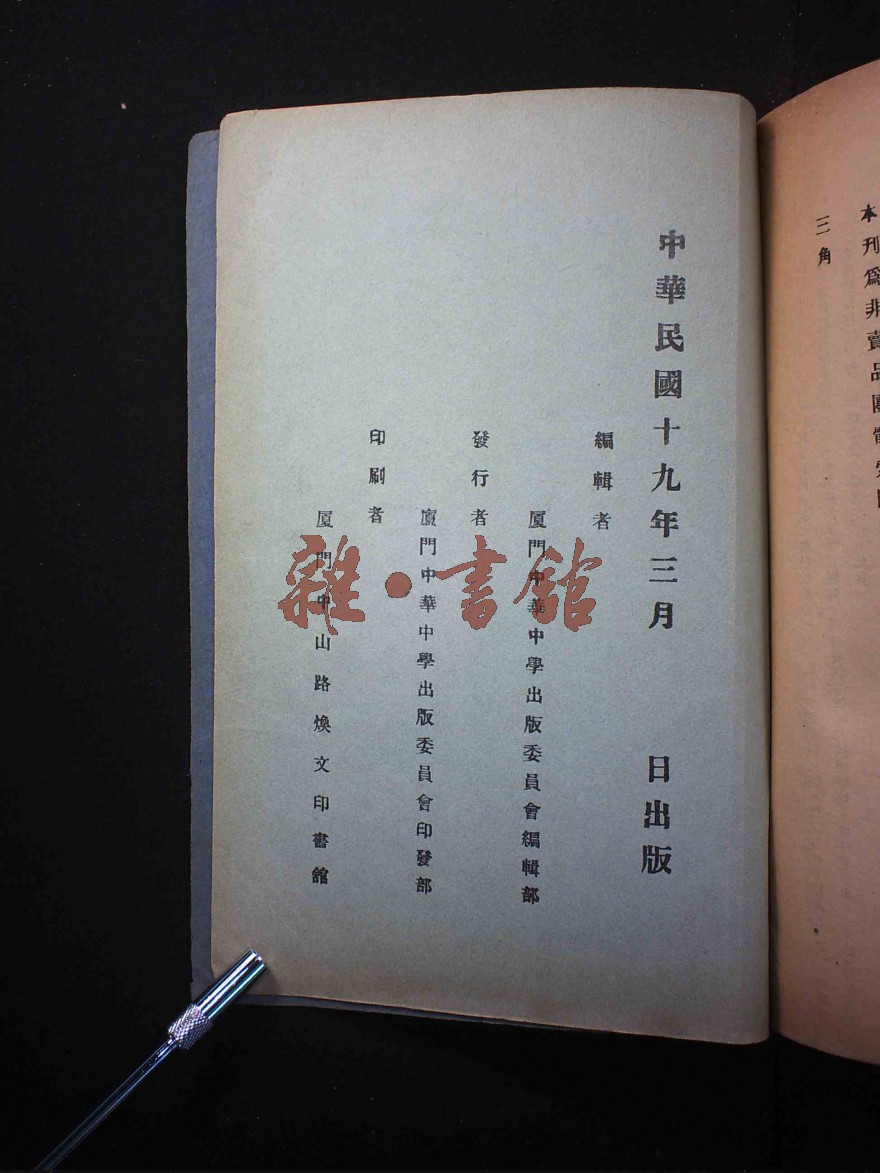 本刊爲非賣品
三角
中華民國十九年三月　　日出版
編輯者
厦門中華中學出版委員會編輯部
發行者
廈門中華中學出版委員會印發部
印刷者
厦門中山路煥文印書館
雜·書館